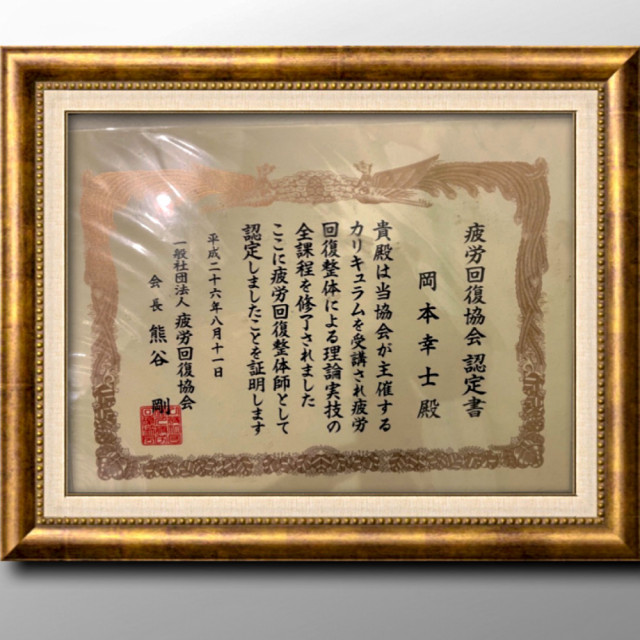 疲労回復協会 認定書
岡本幸士 殿
貴殿は当協会が主催する
カリキュラムを受講され疲労
回復整体による理論実技の
全課程を修了されました
ここに疲労回復整体師として
認定しましたことを証明します
平成二十六年八月十一日
一般社団法人 疲労回復協会
会長 熊谷 剛